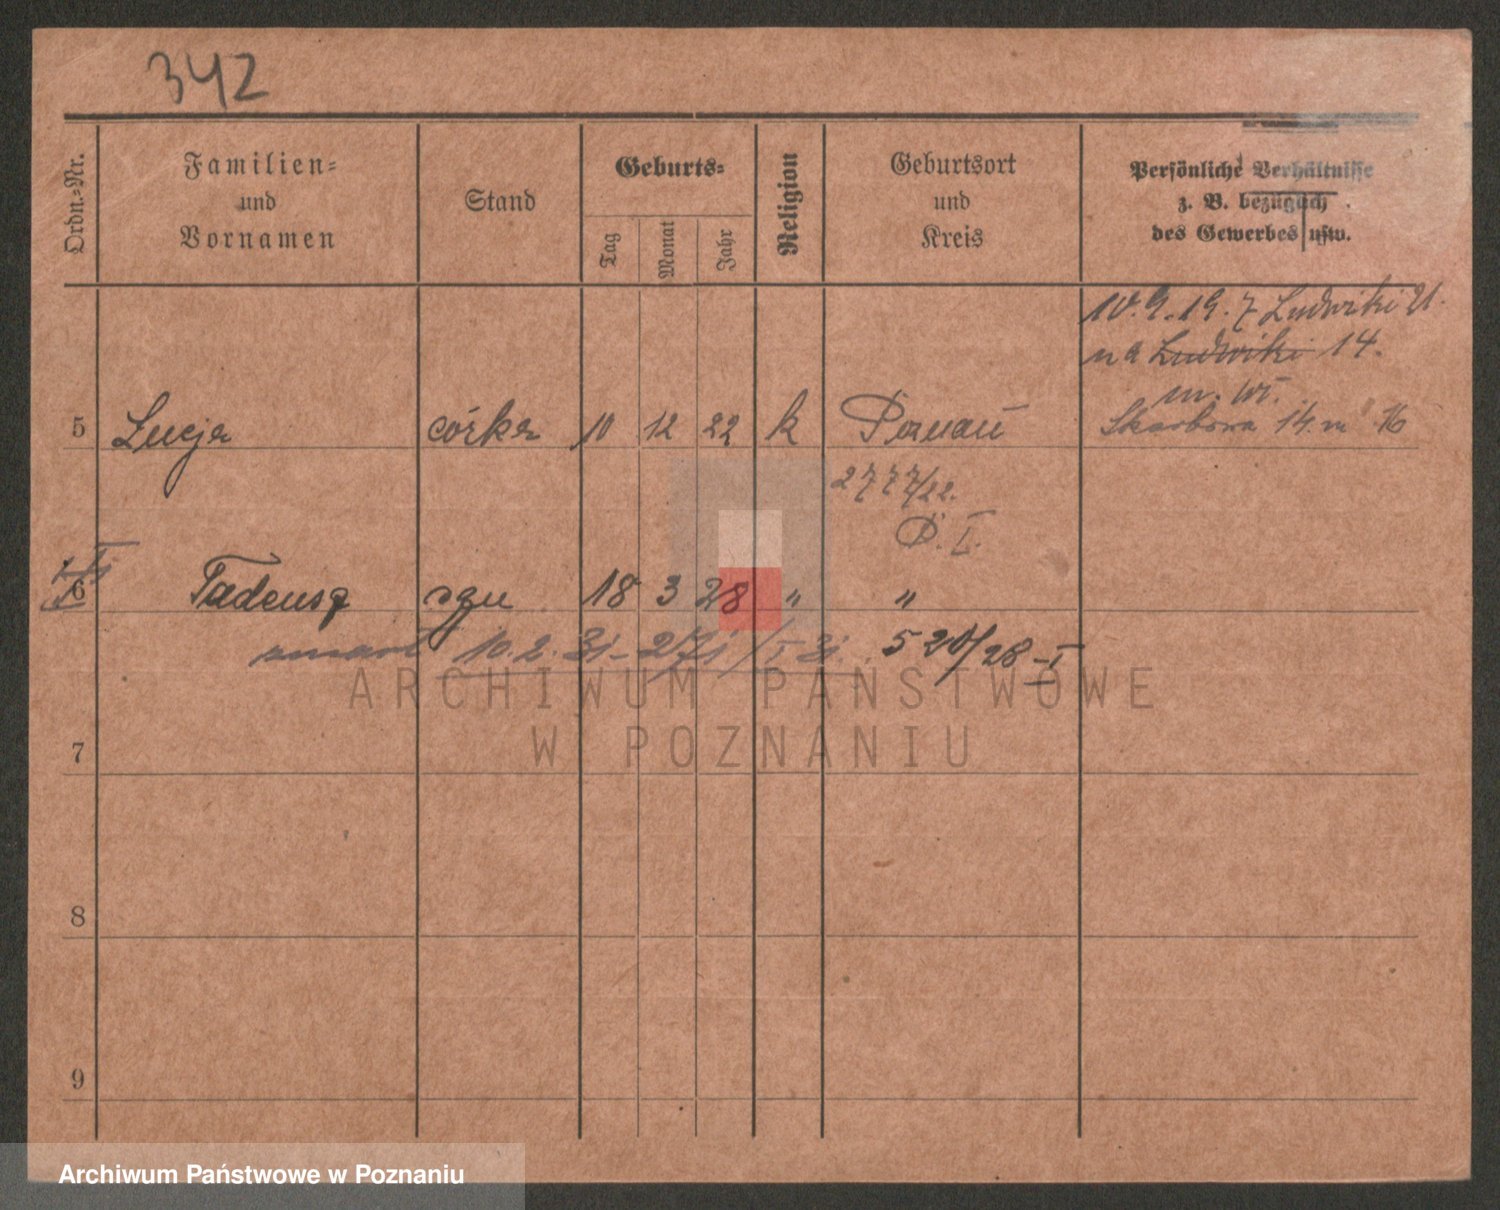 342
Ordn.-Nr.
Familien-
und
Vornamen
Stand
Geburts-
Tag
Monat
Jahr
Religion
Geburtsort
und
Kreis
Persönliche Verhältnisse
z. B. bezüglich
des Gewerbes usw.
19. z Ludwiki 21.
na Ludwiki 14.
5 Lucja córka 10 12 22 k Poznań
Skarbowa 14. m 16
2777/22.
P. I.
6 Tadeusz syn 18 3 28 " "
zmarł 10. 2. 31 - 271/I 31. 520/28-I
7
8
9
ARCHIWUM PAŃSTWOWE
W POZNANIU
Archiwum Państwowe w Poznaniu